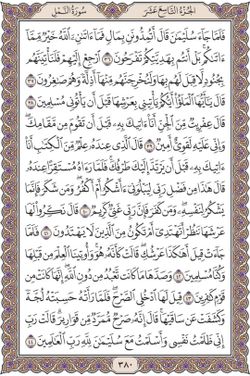 الجزء التاسع عشر
سورة النمل
فلما جاء سليمن قال أتمدونن بمال فما ءاتىن الله خير مما
ءاتىكم بل أنتم بهديتكم تفرحون ٣٦ ارجع إليهم فلنأتينهم
بجنود لا قبل لهم بها ولنخرجنهم منها أذلة وهم صغرون ٣٧
قال يأيها الملؤا أيكم يأتيني بعرشها قبل أن يأتوني مسلمين ٣٨
قال عفريت من الجن أنا ءاتيك به قبل أن تقوم من مقامك
وإني عليه لقوي أمين ٣٩ قال الذي عنده علم من الكتب أنا
ءاتيك به قبل أن يرتد إليك طرفك فلما رءاه مستقرا عنده
قال هذا من فضل ربي ليبلوني ءأشكر أم أكفر ومن شكر فإنما
يشكر لنفسه ومن كفر فإن ربي غني كريم ٤٠ قال نكروا لها
عرشها ننظر أتهتدي أم تكون من الذين لا يهتدون ٤١ فلما
جاءت قيل أهكذا عرشك قالت كأنه هو وأوتينا العلم من قبلها
وكنا مسلمين ٤٢ وصدها ما كانت تعبد من دون الله إنها كانت من
قوم كفرين ٤٣ قيل لها ادخلي الصرح فلما رأته حسبته لجة
وكشفت عن ساقيها قال إنه صرح ممرد من قوارير قالت رب
إني ظلمت نفسي وأسلمت مع سليمن لله رب العلمين ٤٤
٣٨٠